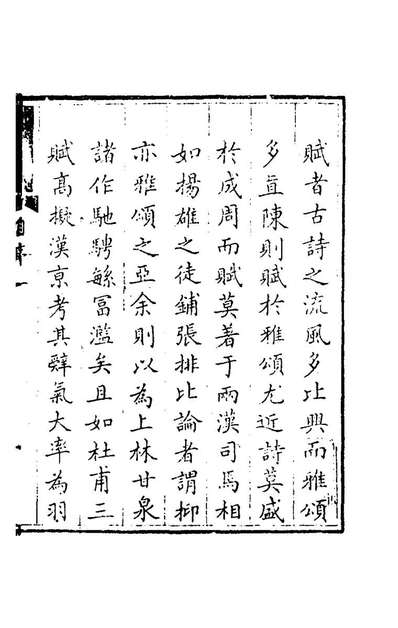 賦者古詩之流風多比興而雅頌
多亶陳則賦於雅頌尤近詩莫盛
於成周而賦莫著于兩漢司馬相
如揚雄之徒鋪張排比論者謂抑
亦雅頌之亞余則以為上林甘泉
諸作馳騁繇富濫矣且如杜甫三
賦高擬漢京考其辭氣大率為羽
自序
一